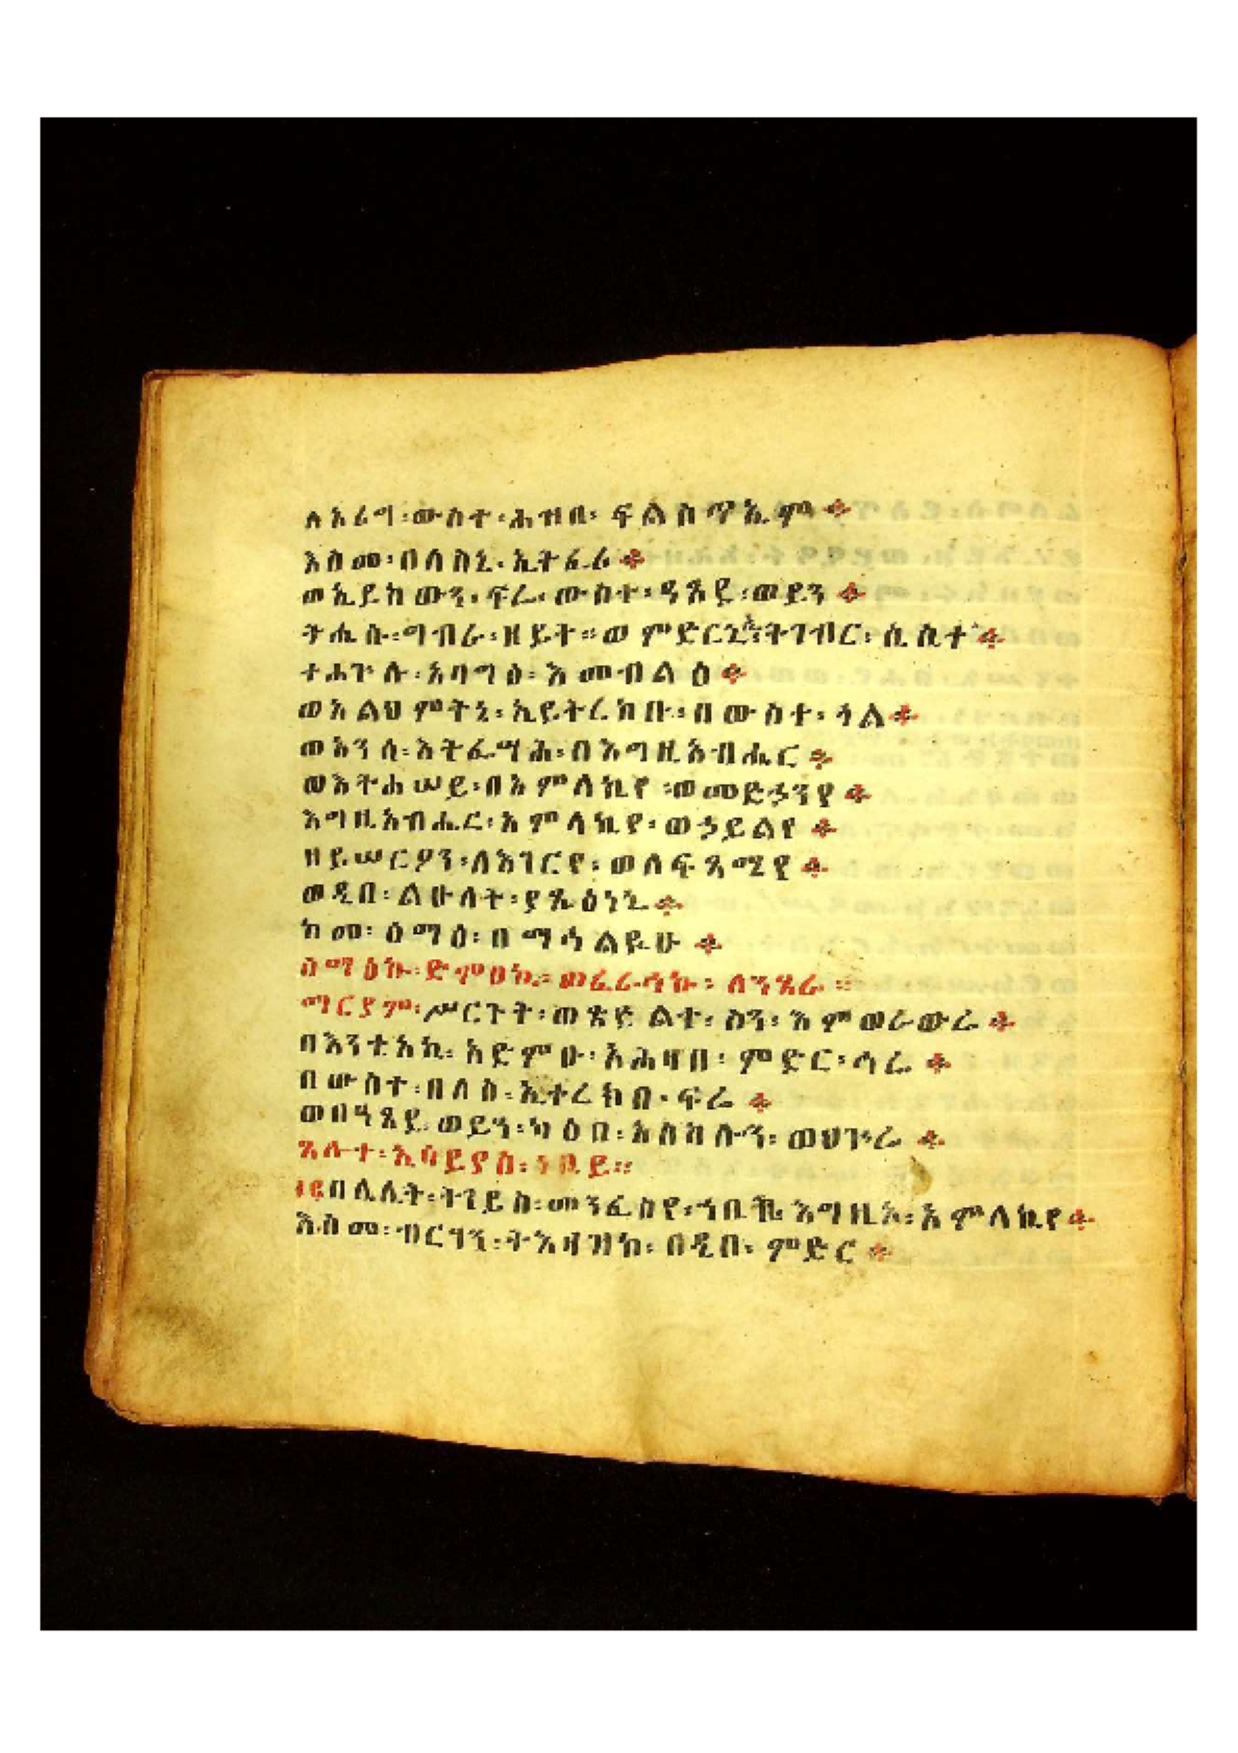 ለአረግ፡ውስተ፡ሕዝበ፡ ፍልስጥኤም ።
እስመ፡በለስኒ፡ኢትፈሪ ።
ወኢይከውን፡ፍሬ፡ውስተ፡ዓጸደ፡ወይን ።
ትሔሱ፡ግብራ፡ዘይት። ወምድርኒ፡ኢትገብር፡ሲሲተ ።
ተሐጕሉ፡አባግዕ፡እመብልዕ ።
ወአልህምትኒ፡ኢይትረከቡ፡በውስተ፡ጎል ።
ወአንሰ፡እትፌሣሕ፡በእግዚአብሔር ።
ወእትሐሠይ፡በአምላኪየ፡ወመድኃንየ ።
እግዚአብሔር፡አምላኪየ፡ወኃይልየ ።
ዘይሠርዖን፡ለእገርየ፡ወለፍጻሜየ ።
ወዲበ፡ልሁላት፡ያጼዕነኒ ።
ከመ፡ዕማዕ፡በማኅልዪሁ ።
ሰማዕኩ፡ድምፀኪ። ወፈራኅኩ፡ ለንጻሬ ።
ማርያም፡ሥርጉት፡ወጽድልተ፡ስን፡እምወራውሬ ።
በእንተአኪ፡አድምፁ፡አሕዛበ፡ምድር፡ሳሬ ።
በውስተ፡በለስ፡ኢተረክበ፡ፍሬ ።
ወበዓጸደ፡ወይን፡ካዕበ፡አስካሉን፡ወህጕሬ ።
ጸሎተ፡ኢሳይያስ፡ነቢይ።
በሌሊት፡ትገይስ፡መንፈስየ፡ኀቤከ፡እግዚኦ፡አምላኪየ ።
እስመ፡ብርሃን፡ትእዛዝከ፡በዲበ፡ምድር ።